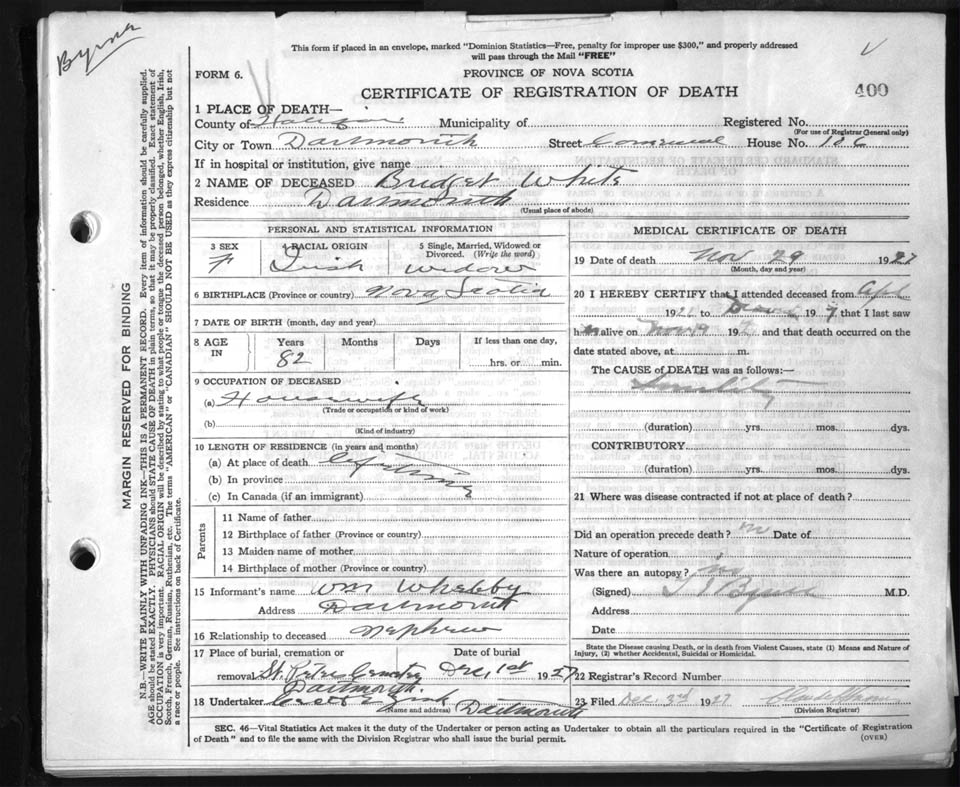 Byrne
This form if placed in an envelope, marked "Dominion Statistics—Free, penalty for improper use $300," and properly addressed
will pass through the Mail "FREE"
FORM 6.
PROVINCE OF NOVA SCOTIA
CERTIFICATE OF REGISTRATION OF DEATH
400
1 PLACE OF DEATH—
County of Halifax Municipality of Registered No.
(For use of Registrar General only)
City or Town Dartmouth Street Commercial House No. 186
If in hospital or institution, give name
2 NAME OF DECEASED Bridget White
Residence Dartmouth
(Usual place of abode)
MARGIN RESERVED FOR BINDING
N.B.—WRITE PLAINLY WITH UNFADING INK—THIS IS A PERMANENT RECORD. Every item of information should be carefully supplied.
AGE should be stated EXACTLY. PHYSICIANS should STATE CAUSE OF DEATH in plain terms, so that it may be properly classified. Exact statement of
OCCUPATION is very important. RACIAL ORIGIN will be described by stating to what people or tongue the deceased person belonged, whether English, Irish,
Scotch, French, German, Russian, Ruthenian, etc. The terms "AMERICAN" or "CANADIAN" SHOULD NOT BE USED as they express citizenship but not
a race or people. See instructions on back of Certificate.
PERSONAL AND STATISTICAL INFORMATION
3 SEX 4 RACIAL ORIGIN 5 Single, Married, Widowed or
Divorced. (Write the word)
F Irish widow
6 BIRTHPLACE (Province or country) Nova Scotia
7 DATE OF BIRTH (month, day and year)
8 AGE IN Years Months Days If less than one day,
82 hrs. or min.
9 OCCUPATION OF DECEASED
(a) Housewife
(Trade or occupation or kind of work)
(b)
(Kind of industry)
10 LENGTH OF RESIDENCE (in years and months)
(a) At place of death lifetime
(b) In province
(c) In Canada (if an immigrant)
Parents
11 Name of father
12 Birthplace of father (Province or country)
13 Maiden name of mother
14 Birthplace of mother (Province or country)
15 Informant's name Wm Whebby
Address Dartmouth
16 Relationship to deceased Nephew
17 Place of burial, cremation or Date of burial
removal St. Peters Cemetery Dec, 1st 1927
Dartmouth.
18 Undertaker Dartmouth
(Name and address)
MEDICAL CERTIFICATE OF DEATH
19 Date of death Nov 29 1927
(Month, day and year)
20 I HEREBY CERTIFY that I attended deceased from Apl
192 to 1927 that I last saw
h alive on Nov 19 192 and that death occurred on the
date stated above, at m.
The CAUSE OF DEATH was as follows:—
Senility
(duration) yrs. mos. dys.
CONTRIBUTORY
(duration) yrs. mos. dys.
21 Where was disease contracted if not at place of death?
Did an operation precede death? no Date of
Nature of operation
Was there an autopsy? no
(Signed) Byrne M.D.
Address
Date
State the Disease causing Death, or in death from Violent Causes, state (1) Means and Nature of
Injury, (2) whether Accidental, Suicidal or Homicidal.
22 Registrar's Record Number
23 Filed Dec 3rd 1927
(Division Registrar)
SEC. 46—Vital Statistics Act makes it the duty of the Undertaker or person acting as Undertaker to obtain all the particulars required in the "Certificate of Registration
of Death" and to file the same with the Division Registrar who shall issue the burial permit.
(OVER)